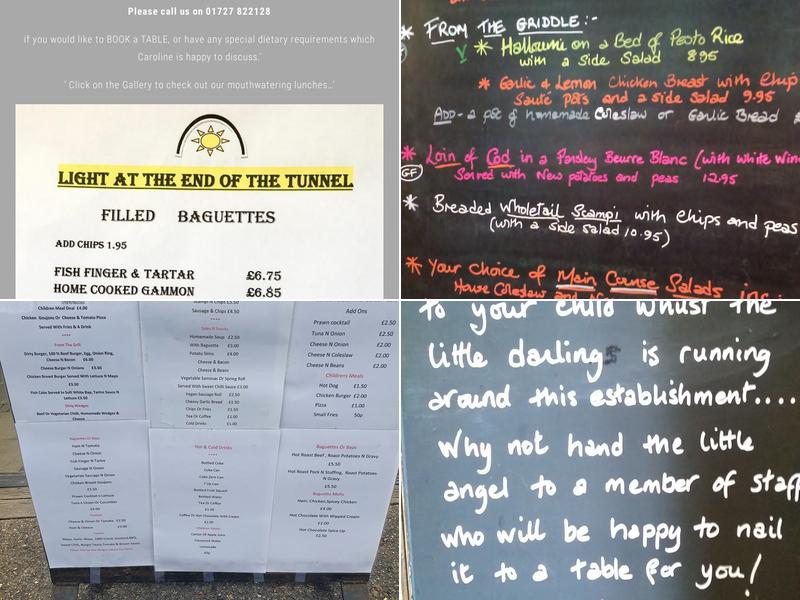 Please call us on 01727 822128
if you would like to BOOK a TABLE, or have any special dietary requirements which
Caroline is happy to discuss.'
' Click on the Gallery to check out our mouthwatering lunches...'
LIGHT AT THE END OF THE TUNNEL
FILLED BAGUETTES
ADD CHIPS 1.95
FISH FINGER & TARTAR £6.75
HOME COOKED GAMMON £6.85
* FROM THE GRIDDLE:-
V * Halloumi on a Bed of Pesto Rice
with a Side Salad 8.95
* Garlic & Lemon Chicken Breast with Chip
Sauté pots and a side salad 9.95
ADD - a pot of homemade Coleslaw or Garlic Bread
* Loin of Cod in a Parsley Beurre Blanc (with white Win
GF Served with New potatoes and peas 12.95
* Breaded Wholetail Scampi with chips and peas
(with a side salad 10.95)
* Your Choice of Main Course Salads inc
House Coleslaw and
Children Meal Deal £4.00
Chicken Goujons Or Cheese & Tomato Pizza
Served With Fries & A Drink
****
From The Grill
Dirty Burger, 100 % Beef Burger, Egg, Onion Ring,
Cheese N Bacon £6.00
Cheese Burger N Onions £3.50
Chicken Breast Burger Served with Lettuce N Mayo
£3.50
Fish Cake Served In Soft White Bap, Tartar Sauce N
Lettuce £3.50
Dirty Wedges
Beef Or Vegetarian Chili, Homemade Wedges &
Cheese
Sausage & Chips £4.50
****
Sides N Snacks
Homemade Soup £2.50
With Baguette £3.00
Potato Skins £4.00
Cheese & Bacon
Cheese & Beans
Vegetable Samosas Or Spring Roll
Served With Sweet Chilli Sauce £3.00
Vegan Sausage Roll £2.50
Cheesy Garlic Bread £3.50
Chips Or Fries £1.50
Tea Or Coffee £1.00
Cold Drinks £1.00
Add Ons
Prawn cocktail £2.50
Tuna N Onion £2.50
Cheese N Onion £2.00
Cheese N Coleslaw £2.00
Cheese N Beans £2.00
Childrens Meals
Hot Dog £1.50
Chicken Burger £2.00
Pizza £1.00
Small Fries 50p
Baguettes Or Baps
Ham N Tomato
Cheese N Onion
Fish Finger N Tartar
Sausage N Onion
Vegetarian Sausage N Onion
Chicken Breast Goujons
£3.50
Prawn Cocktail n Lettuce
Tuna N Onion Or Cucumber
£4.00
Cheese & Onion Or Tomato £2.50
Ham & Cheese £3.00
Hot & Cold Drinks
Bottled Coke
Coke Can
Coke Zero Can
7 Up Can
Bottled Fruit Squash
Bottled Water
Tea Or Coffee
£1.00
Coffee Or Hot Chocolate With Cream
£1.50
Carton Of Apple Juice
Flavoured Water
Lemonade
Baguettes Or Baps
Hot Roast Beef, Roast Potatoes N Gravy
£5.50
Hot Roast Pork N Stuffing, Roast Potatoes
N Gravy
£5.50
Baguette Melts
Ham, Chicken, Spicy Chicken
£4.00
Hot Chocolate With Wipped Cream
£2.00
Hot Chocolate Spice Up
£2.50
to your child whilst the
little darling is running
around this establishment....
Why not hand the little
angel to a member of staff
who will be happy to nail
it to a table for you!